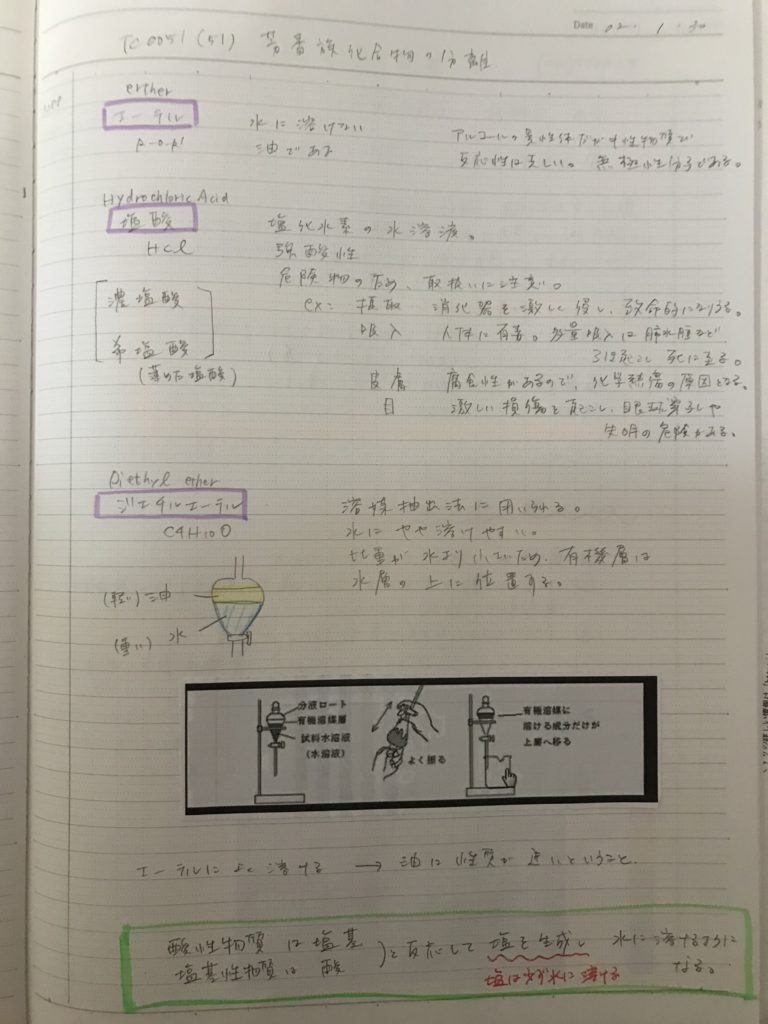 Date 02 . 1 . 30
TC0051 (51) 芳香族化合物の分離
erther
エーテル
水に溶けない
アルコールの異性体だが中性物質で
R-O-R'
油である
反応性は乏しい。 無極性分子である。
Hydrochloric Acid
塩酸
塩化水素の水溶液。
HCl
強酸性
危険物のため、取扱いに注意。
濃塩酸
ex: 摂取 消化器を激しく侵し、致命的になりうる。
吸入 人体に有害。多量吸入は肺水腫など
希塩酸
引き起こし死に至る。
(薄めた塩酸)
皮膚 腐食性があるので、化学熱傷の原因となる。
目 激しい損傷を起こし、眼球
失明の危険がある。
Diethyl ether
ジエチルエーテル
溶媒抽出法に用いられる。
C4H10O
水にやや溶けやすい。
比重が水より小さいため、有機層は
水層の上に位置する。
(軽い) 油
(重い) 水
分液ロート
有機溶媒層
試料水溶液
(水溶液)
よく振る
有機溶媒に
溶ける成分だけが
上層へ移る
エーテルによく溶ける → 油に性質が近いということ.
酸性物質は塩基
塩基性物質は酸
と反応して 塩を生成し 水に溶けるように
なる。
塩は水に溶ける